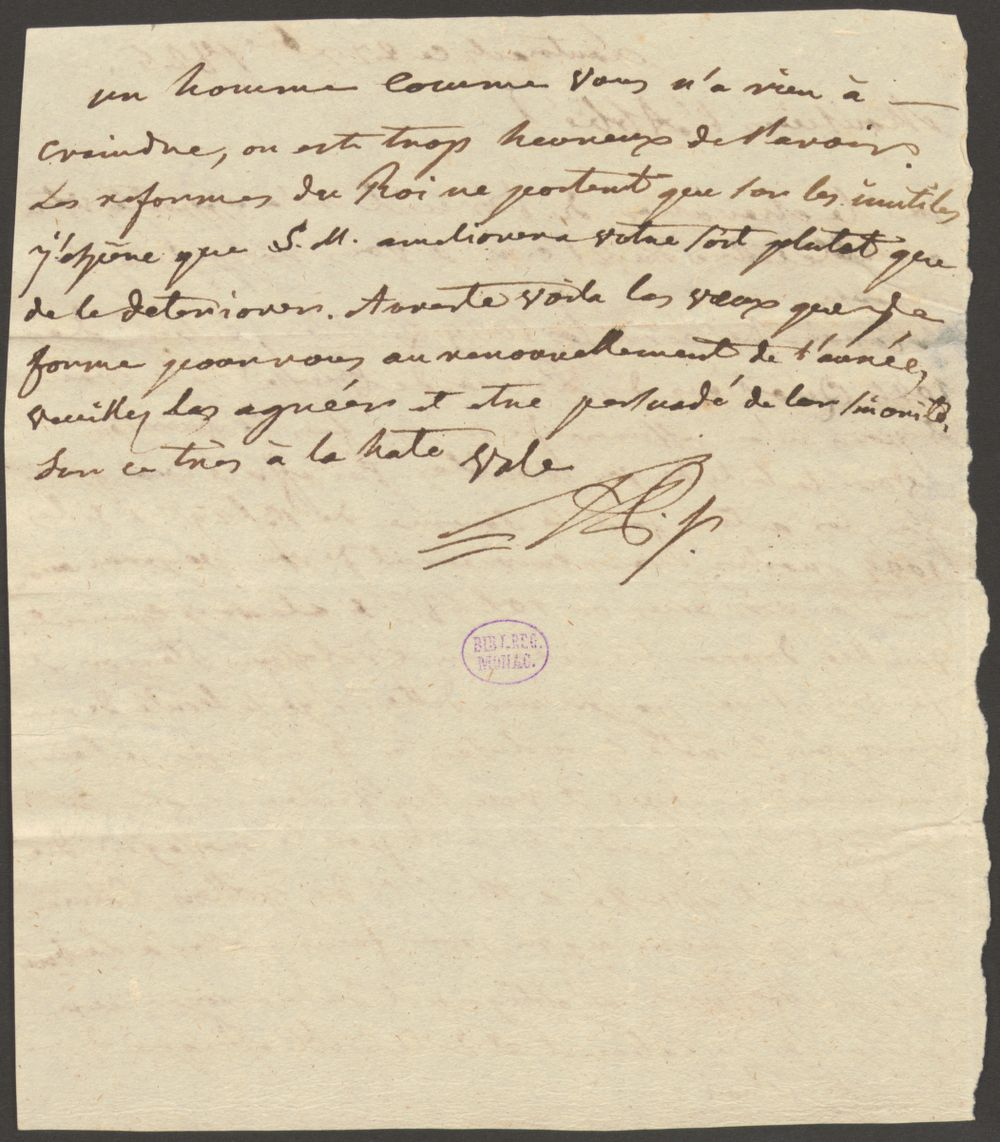 un homme comme vous n'a rien à —
craindre, on est trop heureux de l'avoir.
Les reformes du Roi ne portent que sur les inutiles
j'espère que S. M. ameliorera votre sort plutot que
de le deteriorer. Au reste voila les vœux que je
forme pour vous au renouvellement de l'année,
veuillez les agréer et etre persuadé de leur sincerité.
Sur ce très à la hate Vale
BIBL. REG.
MONAC.